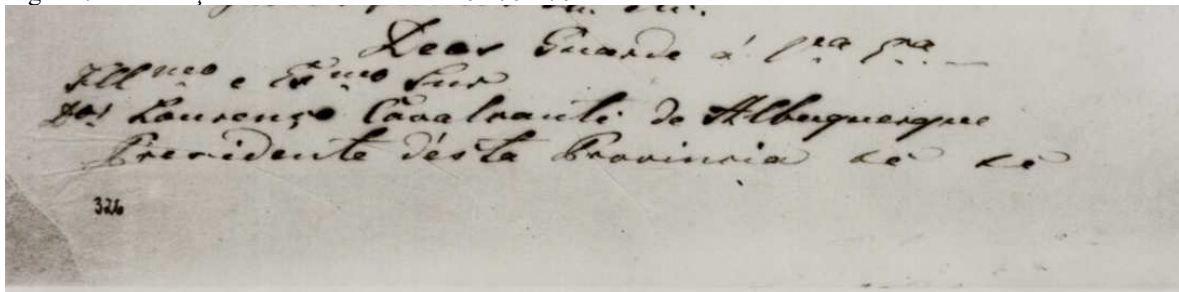 Deos Guarde á V.ª Ex.ª
Ill.mo e Ex.mo Snr
Dor Lourenço Cavalcanti de Albuquerque
Prezidente désta Provincia
326